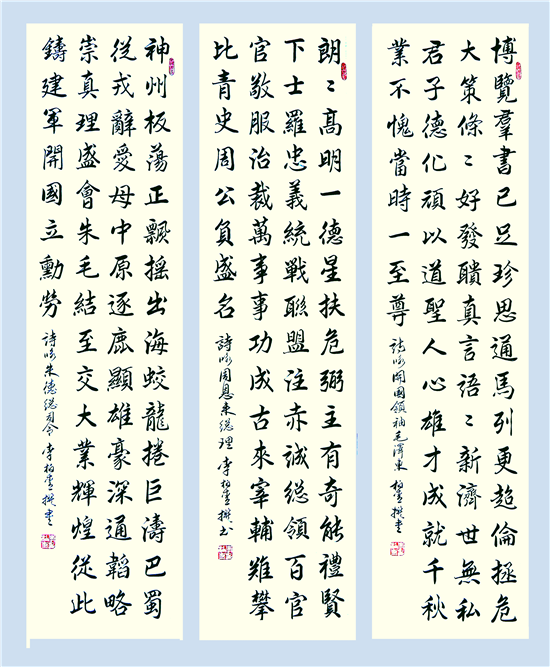 博覽羣書已足珍思通馬列更超倫拯危
大策條〻好發聵真言語〻新濟世無私
君子德化頑以道聖人心雄才成就千秋
業不愧當時一至尊 詩咏開國領袖毛澤東 柏撰書
朗〻高明一德星扶危弼主有奇能禮賢
下士羅忠義統戰聯盟注赤誠總領百官
官敬服治裁萬事事功成古來宰輔難攀
比青史周公負盛名 詩咏周恩来總理 李柏撰书
神州板蕩正飄摇出海蛟龍捲巨濤巴蜀
從戎辭愛母中原逐鹿顯雄豪深通韜略
崇真理盛會朱毛結至交大業輝煌從此
鑄建軍開國立勳勞 詩咏朱德總司令 李柏撰書